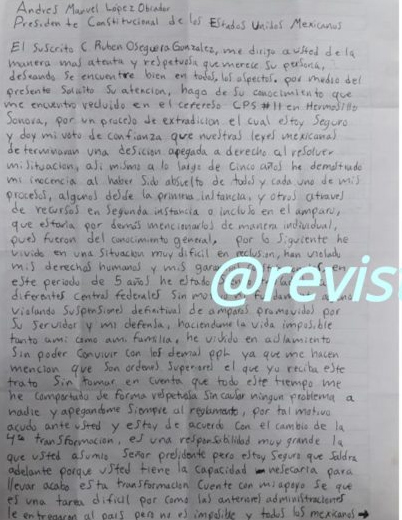 Andres Manuel Lopez Obrador
Presidente Constitucional de los Estados Unidos Mexicanos
El Suscrito C Ruben Oseguera Gonzalez, me dirijo a usted de la
manera mas atenta y respetuosa que merece su persona,
deseando se encuentre bien en todos los aspectos. por medio del
presente Solicito Su atencion, hago de Su conocimiento que
me encuentro recluido en el cefereso CPS #11 en Hermosillo
Sonora, por un proceso de extradicion el cual estoy Seguro
y doy mi voto de confianza que nuestras leyes mexicanas
determinaran una desicion apegada a derecho al resolver
mi situacion, asi mismo a lo largo de Cinco años he demostrado
mi inocencia al haber Sido absuelto de todos y cada uno de mis
procesos, algunos desde la primera instancia, y otros atraves
de recursos en Segunda instancia o incluso en el amparo,
que estaria por demas mencionarlos de manera individual,
pues fueron del conocimiento general, por lo Siguiente he
vivido en una Situacion muy dificil en reclusion, han violado
mis derechos humanos y mis
este periodo de 5 años he
@revis
diferentes Centros federales Sin
violando Suspensiones definitivas de amparos promovidos por
Su servidor y mi defensa, haciendome la vida imposible
tanto ami como ami familia, he vivido en aislamiento
Sin poder Convivir con los demas ppl ya que me hacen
mencion que Son ordenes Superiores el que yo reciba este
trato Sin tomar en Cuenta que todo este tiempo me
he Comportado de forma respetuosa Sin causar ningun problema a
nadie y apegandome Siempre al reglamento, por tal motivo
acudo ante usted y estoy de acuerdo Con el cambio de la
4ta transformacion, es una responsabilidad muy grande la
que usted asumio Señor presidente pero estoy Seguro que Saldra
adelante porque usted tiene la Capacidad necesaria para
llevar acabo esta transformacion Cuente con mi apoyo Se que
es una tarea dificil por como las anteriores administraciones
le entregaron al pais pero no es imposible y todos los mexicanos →